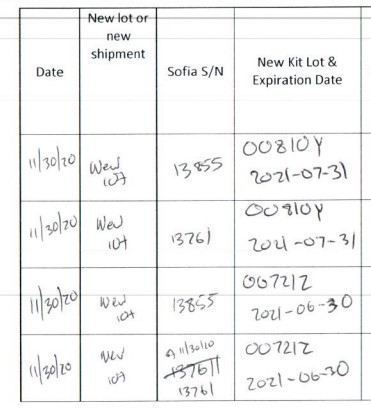 Date
New lot or
new
shipment
Sofia S/N
New Kit Lot &
Expiration Date
11/30/20
New
lot
13855
00810Y
2021-07-31
11/30/20
New
lot
13761
00810Y
2021-07-31
11/30/20
New
lot
13855
007212
2021-06-30
11/30/20
New
lot
11/30/20
13761
007212
2021-06-30